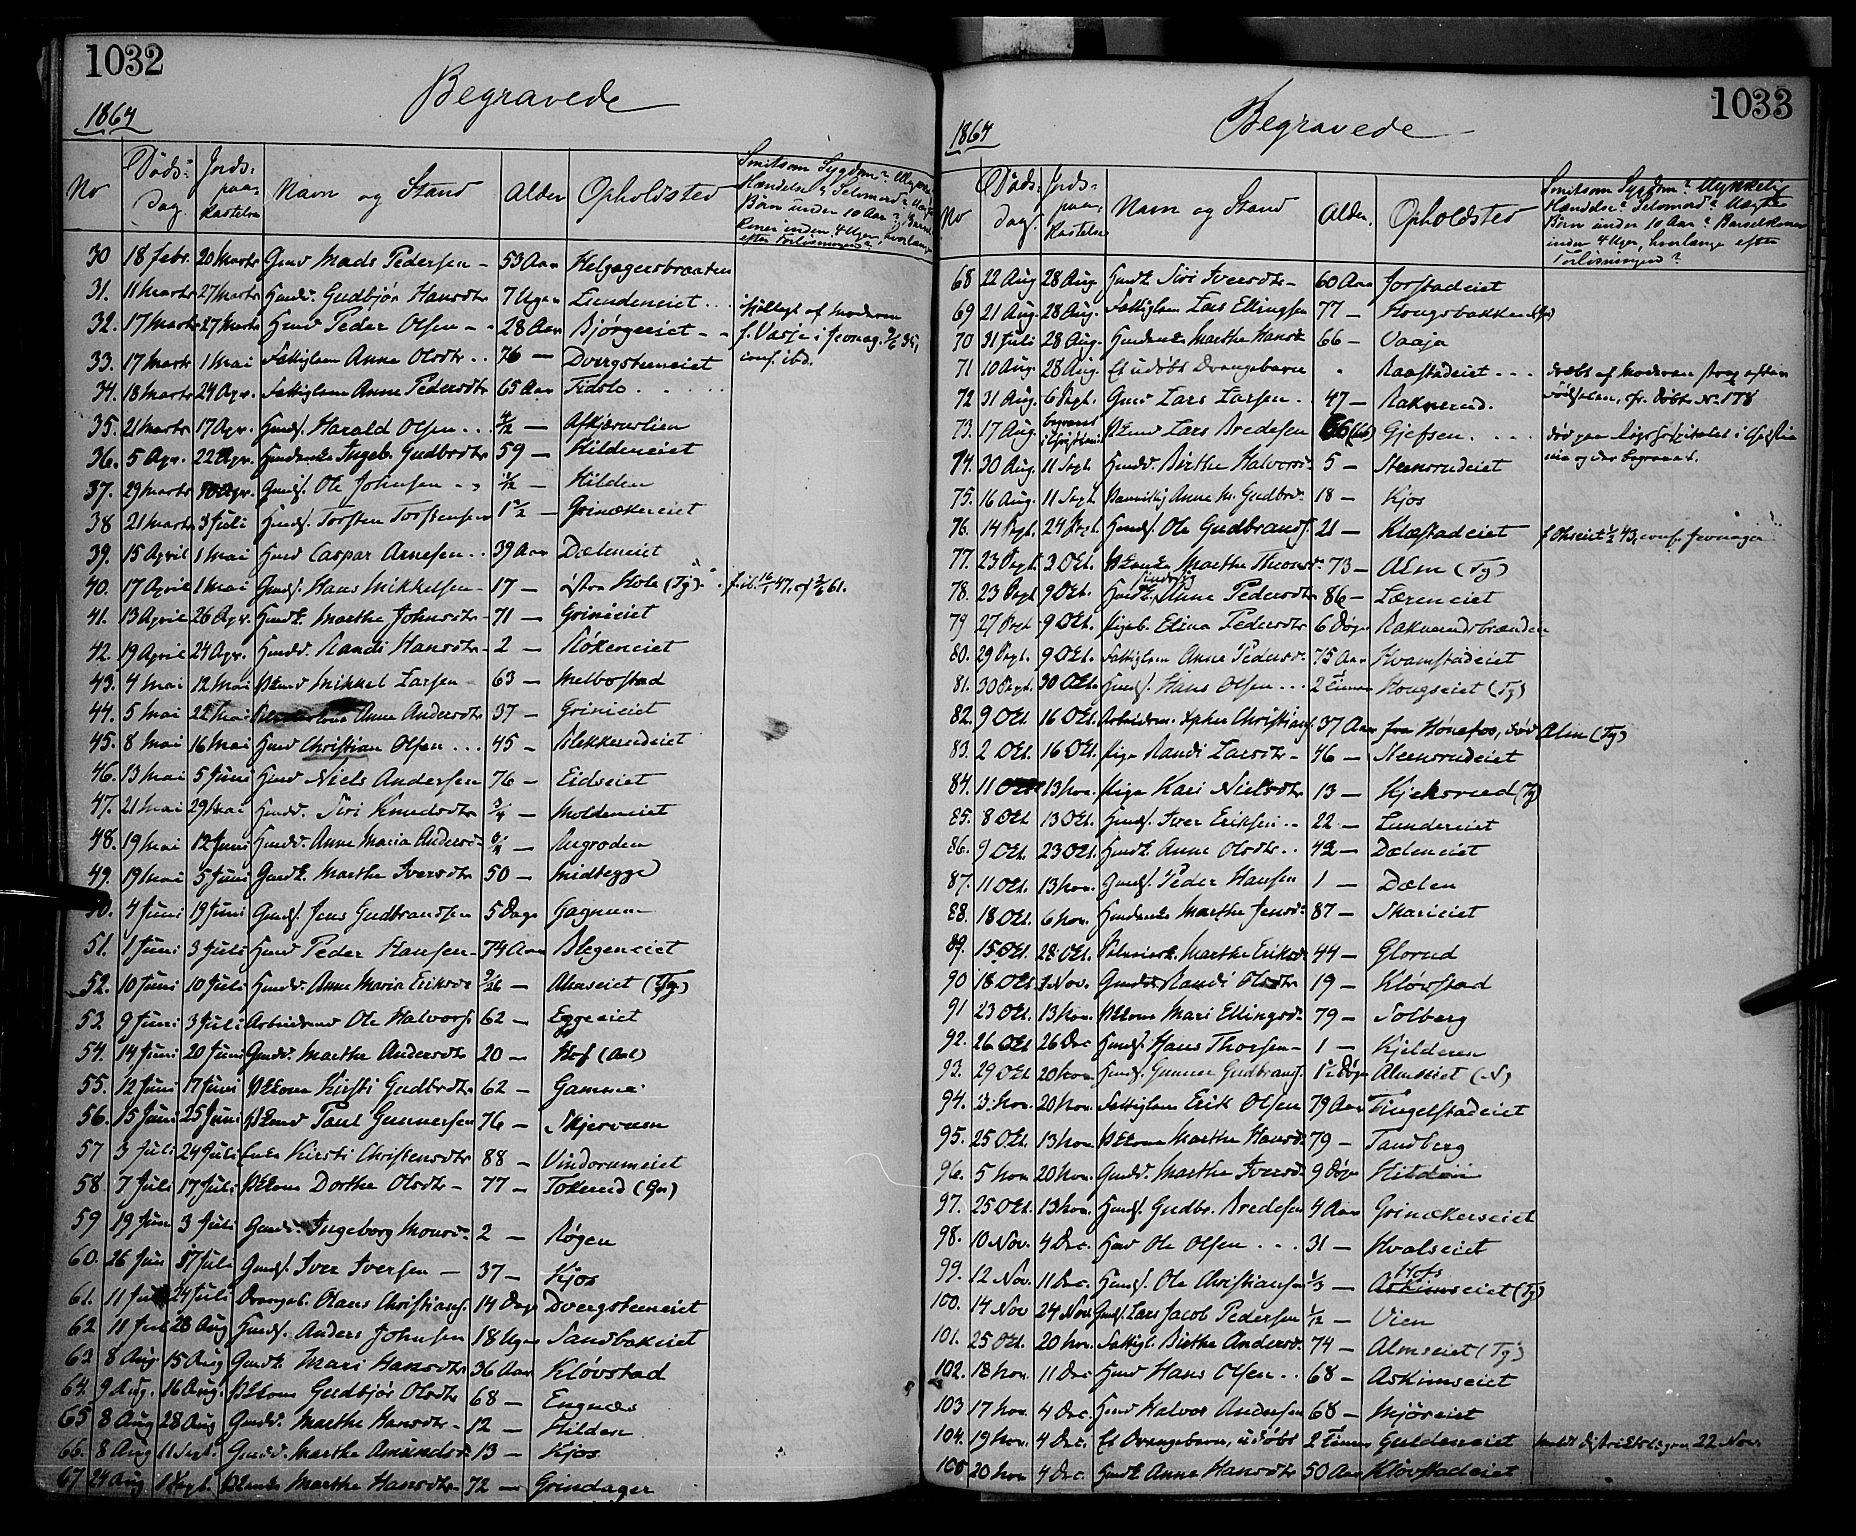 1032
Begravede
1864
No Døds- dag. Jords- paa- kastelse Navn og Stand Alder Opholdsted Smitsom Sygdom? Ulykkel.
Hændelse? Selvmord? Uægte
Børn under 10 Aar?
Koner inden 4 Uger, hvorlænge
efter Forløsningen?
30 18 febr. 20 Marts Gmd Mads Pedersen - 53 Aar Helgagersbraaten
31. 11 Marts 27 Marts Hmds. Gudbjør Hansdtr 7 Uger Lundeneiet
32. 17 Marts 27 Marts Hmd Peder Olsen - - 28 Aar Bjørgeeiet - -
33. 17 Marts 1 Mai Fattiglem Anne Olsdtr .. 76 — Dvergsteneiet conf. ibd.
34. 18 Marts 24 Apr. Fattiglem Anne Pedersdtr 65 Aar Tidsle
35. 21 Marts 17 Apr. Hmds. Harald Olsen .. 4/12 — Askjærnslien
36. 5 Apr. 22 Apr. Hmdenke Ingeb. Gudbrdtr 59 — Hildeneiet
37. 29 Marts Apr. Gmds. Ole Johnsen - „ — Hilden
38 21 Marts 3 Juli Hmds. Torsten Torstensen 1 1/2 — Grinækereiet
39. 15 April 1 Mai Hmd Caspar Arnesen .. 39 Aar Dæleneiet
40. 17 April 1 Mai Gmds. Hans Mikkelsen - 17 — Hole (Tg) f. ib. 16/1 47, 61.
41. 13 April 26 Apr. Hmdk. Marthe Johnsdtr - 71 — Grinieiet
42. 19 April 24 Apr. Hmdd. Randi Hansdtr - 2 — Røkeneiet
43. 4 Mai 12 Mai Mikkel Larsen 63 — Melbostad
44. 5 Mai 22 Mai Anne Andersdtr 37 — Grinieiet
45. 8 Mai 16 Mai Hmd Christian Olsen ... 45 — Blekkerudeiet
46. 13 Mai 5 Juni Hmd Niels Andersen 76 — Eidseiet
47. 21 Mai 29 Mai Hmdd. Siri Knudsdtr 3/4 — Moldeneiet
48. 19 Mai 12 Juni Hmdd. Anne Maria Andersd. — Augroden
49. 19 Mai 5 Juni Gmdk. Marthe Iversdtr 50 — Midtegge
50. 4 Juni 19 Juni Gmds. Jens Gudbrandsen 5 Dage Gagnum
51. 1 Juni 3 Juli Hmd Peder Hansen - 74 Aar Blegeneiet
52. 10 Juni 10 Juli Hmdd. Anne Maria Eriksd. 9/26 — Almseiet (Tg.)
53 9 Juni 3 Juli Arbeidsmd Ole Halvors. 62 — Eggeeiet
54. 14 Juni 20 Juni Gmdd. Marthe Andersdtr 20 — Hof (Aal)
55. 12 Juni 17 Juni Kirsti Gudbrdtr 62 — Gamme
56. 15 Juni 25 Juni Paul Gunnersen 76 — Skjervum
57 3 Juli 24 Juli Enke Kirsti Christensdtr 88 — Vindorumeiet
58 7 Juli 17 Juli Dorthe Olsdtr - 77 — Tokerud (Gn)
59 19 Juni 3 Juli Gmdd. Ingeborg Monsd. 2 — Røgen
60. 26 Jun 17 Juli Gmds. Iver Iversen — 37 — Kjos
61. 11 Juli 24 Juli Drangeb. Olaus Christians. 14 Dage Dvergsteneiet
62 11 Jul 28 Aug Hmds. Anders Johnsen 18 Uger Sandbakeiet
63 8 Aug 15 Aug Gmdk. Mari Hansdtr 36 Aar Kløvstad
64. 9 Aug. 16 Aug. Gudbjør Olsdtr 68 — Engnæs
65 8 Aug 28 Aug Gmdd. Marthe Hansdtr - 12 — Hilden
66. 8 Aug 11 Sept. Gmdd. Marthe Amundsd. 13 — Kjos
67 24 Aug 1 Sept. Marthe Hansdtr - 72 — Grindager
1033
1864
Begravede
No Døds- dag. Jords- paa- kastelse Navn og Stand Alder. Opholdsted Smitsom Sygdom? Ulykkelig
Hændelse? Selvmord? Uægte
Børn under 10 Aar? Barselkoner
inden 4 Uger, hvorlænge efter
Forløsningen?
68 22 Aug 28 Aug Hmdk. Siri Iversdtr - 60 Aar Jorstadeiet
69 21 Aug. 28 Aug. Fattiglem Lars Ellingsen 77 — Hougsbakken
70 31 Juli 28 Aug. Hmdenke Marthe Hansd. 66 — Vaaja
71 10 Aug. 28 Aug. Et udøbt Drangebarn „ Raastadeiet ... dræbt af Moderen strax efter
72 31 Aug. 6 Sept. Gmd Lars Larsen . 47 — Raknerud. fødselen, cfr. Døbte No. 178
73. 17 Aug. begravet i Christiania Lars Bredesen 66 Gjefsen .... død paa Rigshospitalet i Christia
74. 30 Aug. 11 Sept Hmdd. Birthe Halvorsd. 5 — Steensrudeiet nia og der begravet.
75. 16 Aug. 11 Sept Anne M. Gudbrd. 18 — Kjos
76. 14 Sept. 24 Sept. Hmds. Ole Gudbrands. 21 — Klæstadeiet
77. 23 Sept. 3 Oct. Marthe Thorsd. 73 — Alm (Tg)
78. 23 Sept 9 Oct. Hmdk. Anne Pedersdtr 86 — Læreneiet
79 27 Sept 9 Oct. Pigeb. Elina Pedersdtr 6 Døgn Raknerudsbraaden
80. 29 Sept. 9 Oct. Fattiglem Anne Pedersd. 75 Aar Hvamstadeiet
81. 30 Sept. 30 Oct. Hmds. Hans Olsen ... 2 Timer Hougseiet (Tg)
82. 9 Oct. 16 Oct. Arbeidsm. Xpher Christians. 37 Aar fra Hønefos, død Alm (Tg)
83. 2 Oct. 16 Oct. Pige Randi Larsdtr - 46 — Steensrudeiet
84. 11 Oct 13 Nov. Pige Kari Nielsdtr 13 — Kjeksrud (Tg)
85. 8 Oct 13 Oct. Hmds. Iver Eriksen .. 22 — Lundereiet
86. 9 Oct. 23 Oct. Hmdk. Anne Olsdtr .. 42 — Dæleneiet
87. 11 Oct. 13 Nov. Gmds. Peder Hansen 1 — Dælen
88. 18 Oct. 6 Nov. Hmdenke Marthe Jensd. 87 — Skarieiet
89. 15 Oct. 28 Oct. Marthe Eriksd. 44 — Glorud
90 18 Oct. Nov. Gmdd. Randi Olsdtr 19 — Kløvstad
91 23 Oct. 13 Nov. Mari Ellingsd. 79 — Solberg
92. 26 Oct 26 Dec Hmds. Hans Thorsen - 1 — Kjelderen
93. 29 Oct 20 Nov Hmds. Gunner Gudbrands. 1 1/2 Døgn Almseiet
94. 3 Nov. 20 Nov. Fattiglem Erik Olsen 79 Aar Tingelstadeiet
95. 25 Oct. 13 Nov Marthe Hansd. 79 — Tandberg
96. 5 Nov 20 Nov. Gmdd. Marthe Iversd. 9 Døgn Hilden
97. 25 Oct. 13 Nov. Hmds. Gudbr. Bredesen 4 Aar Grinækerseiet
98. 10 Nov. 4 Dec. Hmd Ole Olsen ... 31 — Hvalseiet
99. 12 Nov. 11 Dec. Hmds. Ole Christiansen 1/3 — Hofs Askimseiet (Tg)
100. 14 Nov 24 Nov Gmds. Lars Jacob Pedersen 1/12 — Vien
101. 25 Oct. 20 Nov. Fattigl. Birthe Andersd. 74 — Almseiet (Tg)
102. 18 Nov. 11 Dec Hmd Hans Olsen .. 68 — Askimseiet
103 17 Nov. 4 Dec. Hmd Halvor Andersen 68 — Mjøreiet
104. 19 Nov. 4 Dec. Et Drangebarn, udøbt 2 Timer Guldeneiet Distriktslægen 22 Nov.
105 20 Nov 4 Dec. Hmdk Anne Hansdtr 50 Aar Kløvstadeiet